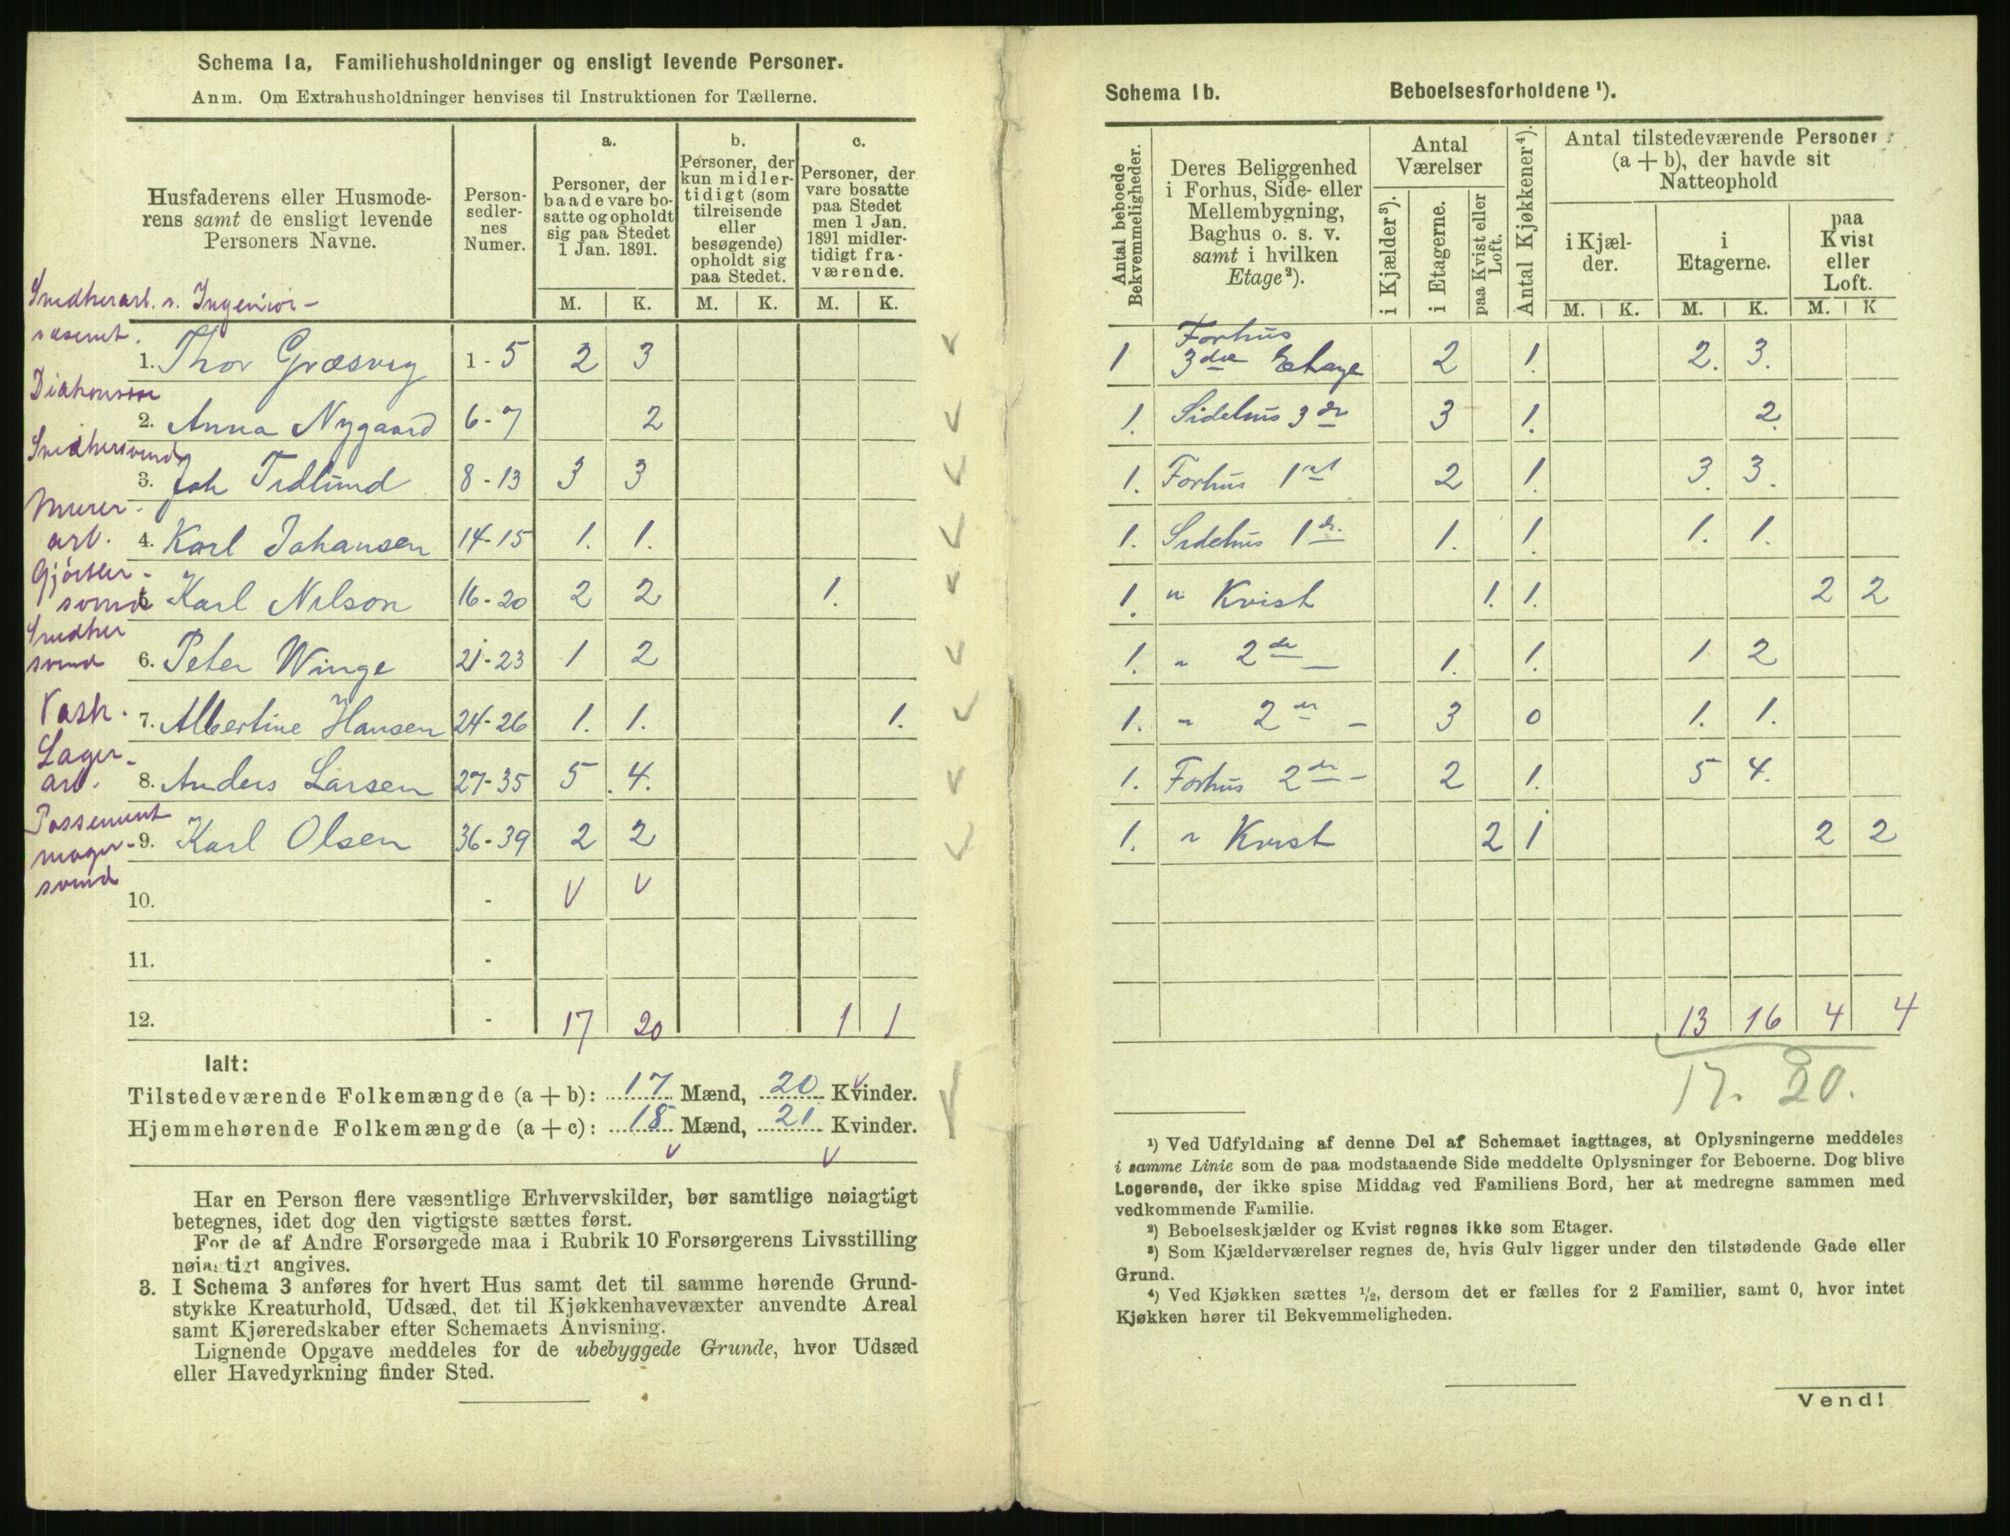 Schema 1a, Familiehusholdninger og ensligt levende Personer.
Anm. Om Extrahusholdninger henvises til Instruktionen for Tællerne.
Husfaderens eller Husmoderens samt de ensligt levende Personers Navne.
Personsedlernes Numer.
a.
Personer, der baade vare bosatte og opholdt sig paa Stedet 1 Jan. 1891.
b.
Personer, der kun midlertidigt (som tilreisende eller besøgende) opholdt sig paa Stedet.
c.
Personer, der vare bosatte paa Stedet men 1 Jan. 1891 midlertidigt fraværende.
M. K. M. K. M. K.
Snedkerarb. v. Ingeniør-
væsenet.
1. Thor Græsvig 1-5 2 3
Diakonisse
2. Anna Nygaard 6-7 2
Snedkersvend
3. Joh Tidlund 8-13 3 3
Murer-
arb.
4. Karl Johansen 14-15 1. 1.
Gjørtler-
svend
5. Karl Nilson 16-20 2 2 1.
Snedker
svend
6. Peter Winge 21-23 1 2
Vask.
7. Albertine Hansen 24-26 1. 1. 1.
Lager-
arb.
8. Anders Larsen 27-35 5 4.
Possement
mager-
svend
9. Karl Olsen 36-39 2 2
10. - V V
11. -
12. - 17 20 1 1
Ialt:
Tilstedeværende Folkemængde (a + b): 17 Mænd, 20 Kvinder.
Hjemmehørende Folkemængde (a + c): 18 Mænd, 21 Kvinder.
Har en Person flere væsentlige Erhvervskilder, bør samtlige nøiagtigt
betegnes, idet dog den vigtigste sættes først.
For de af Andre Forsørgede maa i Rubrik 10 Forsørgerens Livsstilling
nøiagtigt angives.
3. I Schema 3 anføres for hvert Hus samt det til samme hørende Grund-
stykke Kreaturhold, Udsæd, det til Kjøkkenhavevæxter anvendte Areal
samt Kjøreredskaber efter Schemaets Anvisning.
Lignende Opgave meddeles for de ubebyggede Grunde, hvor Udsæd
eller Havedyrkning finder Sted.
Schema 1b. Beboelsesforholdene ¹).
Antal beboede Bekvemmeligheder.
Deres Beliggenhed i Forhus, Side- eller Mellembygning, Baghus o. s. v. samt i hvilken Etage²).
Antal Værelser
i Kjælder³).
i Etagerne.
paa Kvist eller Loft.
Antal Kjøkkener⁴).
Antal tilstedeværende Personer (a + b), der havde sit Natteophold
i Kjælder.
i Etagerne.
paa Kvist eller Loft.
M. K. M. K. M. K
1 Forhus
3die Etage 2 1. 2. 3.
1. Sidehus 3die 3 1. 2.
1. Forhus 1st 2 1. 3. 3.
1. Sidehus 1de 1. 1. 1. 1.
1. " Kvist 1. 1. 2 2
1. " 2de 1. 1. 1 2
1. " 2den - 3 0 1. 1.
1. Forhus 2de - 2 1. 5 4.
1. " Kvist 2 1 2 2
13 16 4 4
17. 20.
¹) Ved Udfyldning af denne Del af Schemaet iagttages, at Oplysningerne meddeles
i samme Linie som de paa modstaaende Side meddelte Oplysninger for Beboerne. Dog blive
Logerende, der ikke spise Middag ved Familiens Bord, her at medregne sammen med
vedkommende Familie.
²) Beboelseskjælder og Kvist regnes ikke som Etager.
³) Som Kjælderværelser regnes de, hvis Gulv ligger under den tilstødende Gade eller
Grund.
⁴) Ved Kjøkken sættes ½, dersom det er fælles for 2 Familier, samt 0, hvor intet
Kjøkken hører til Bekvemmeligheden.
Vend!